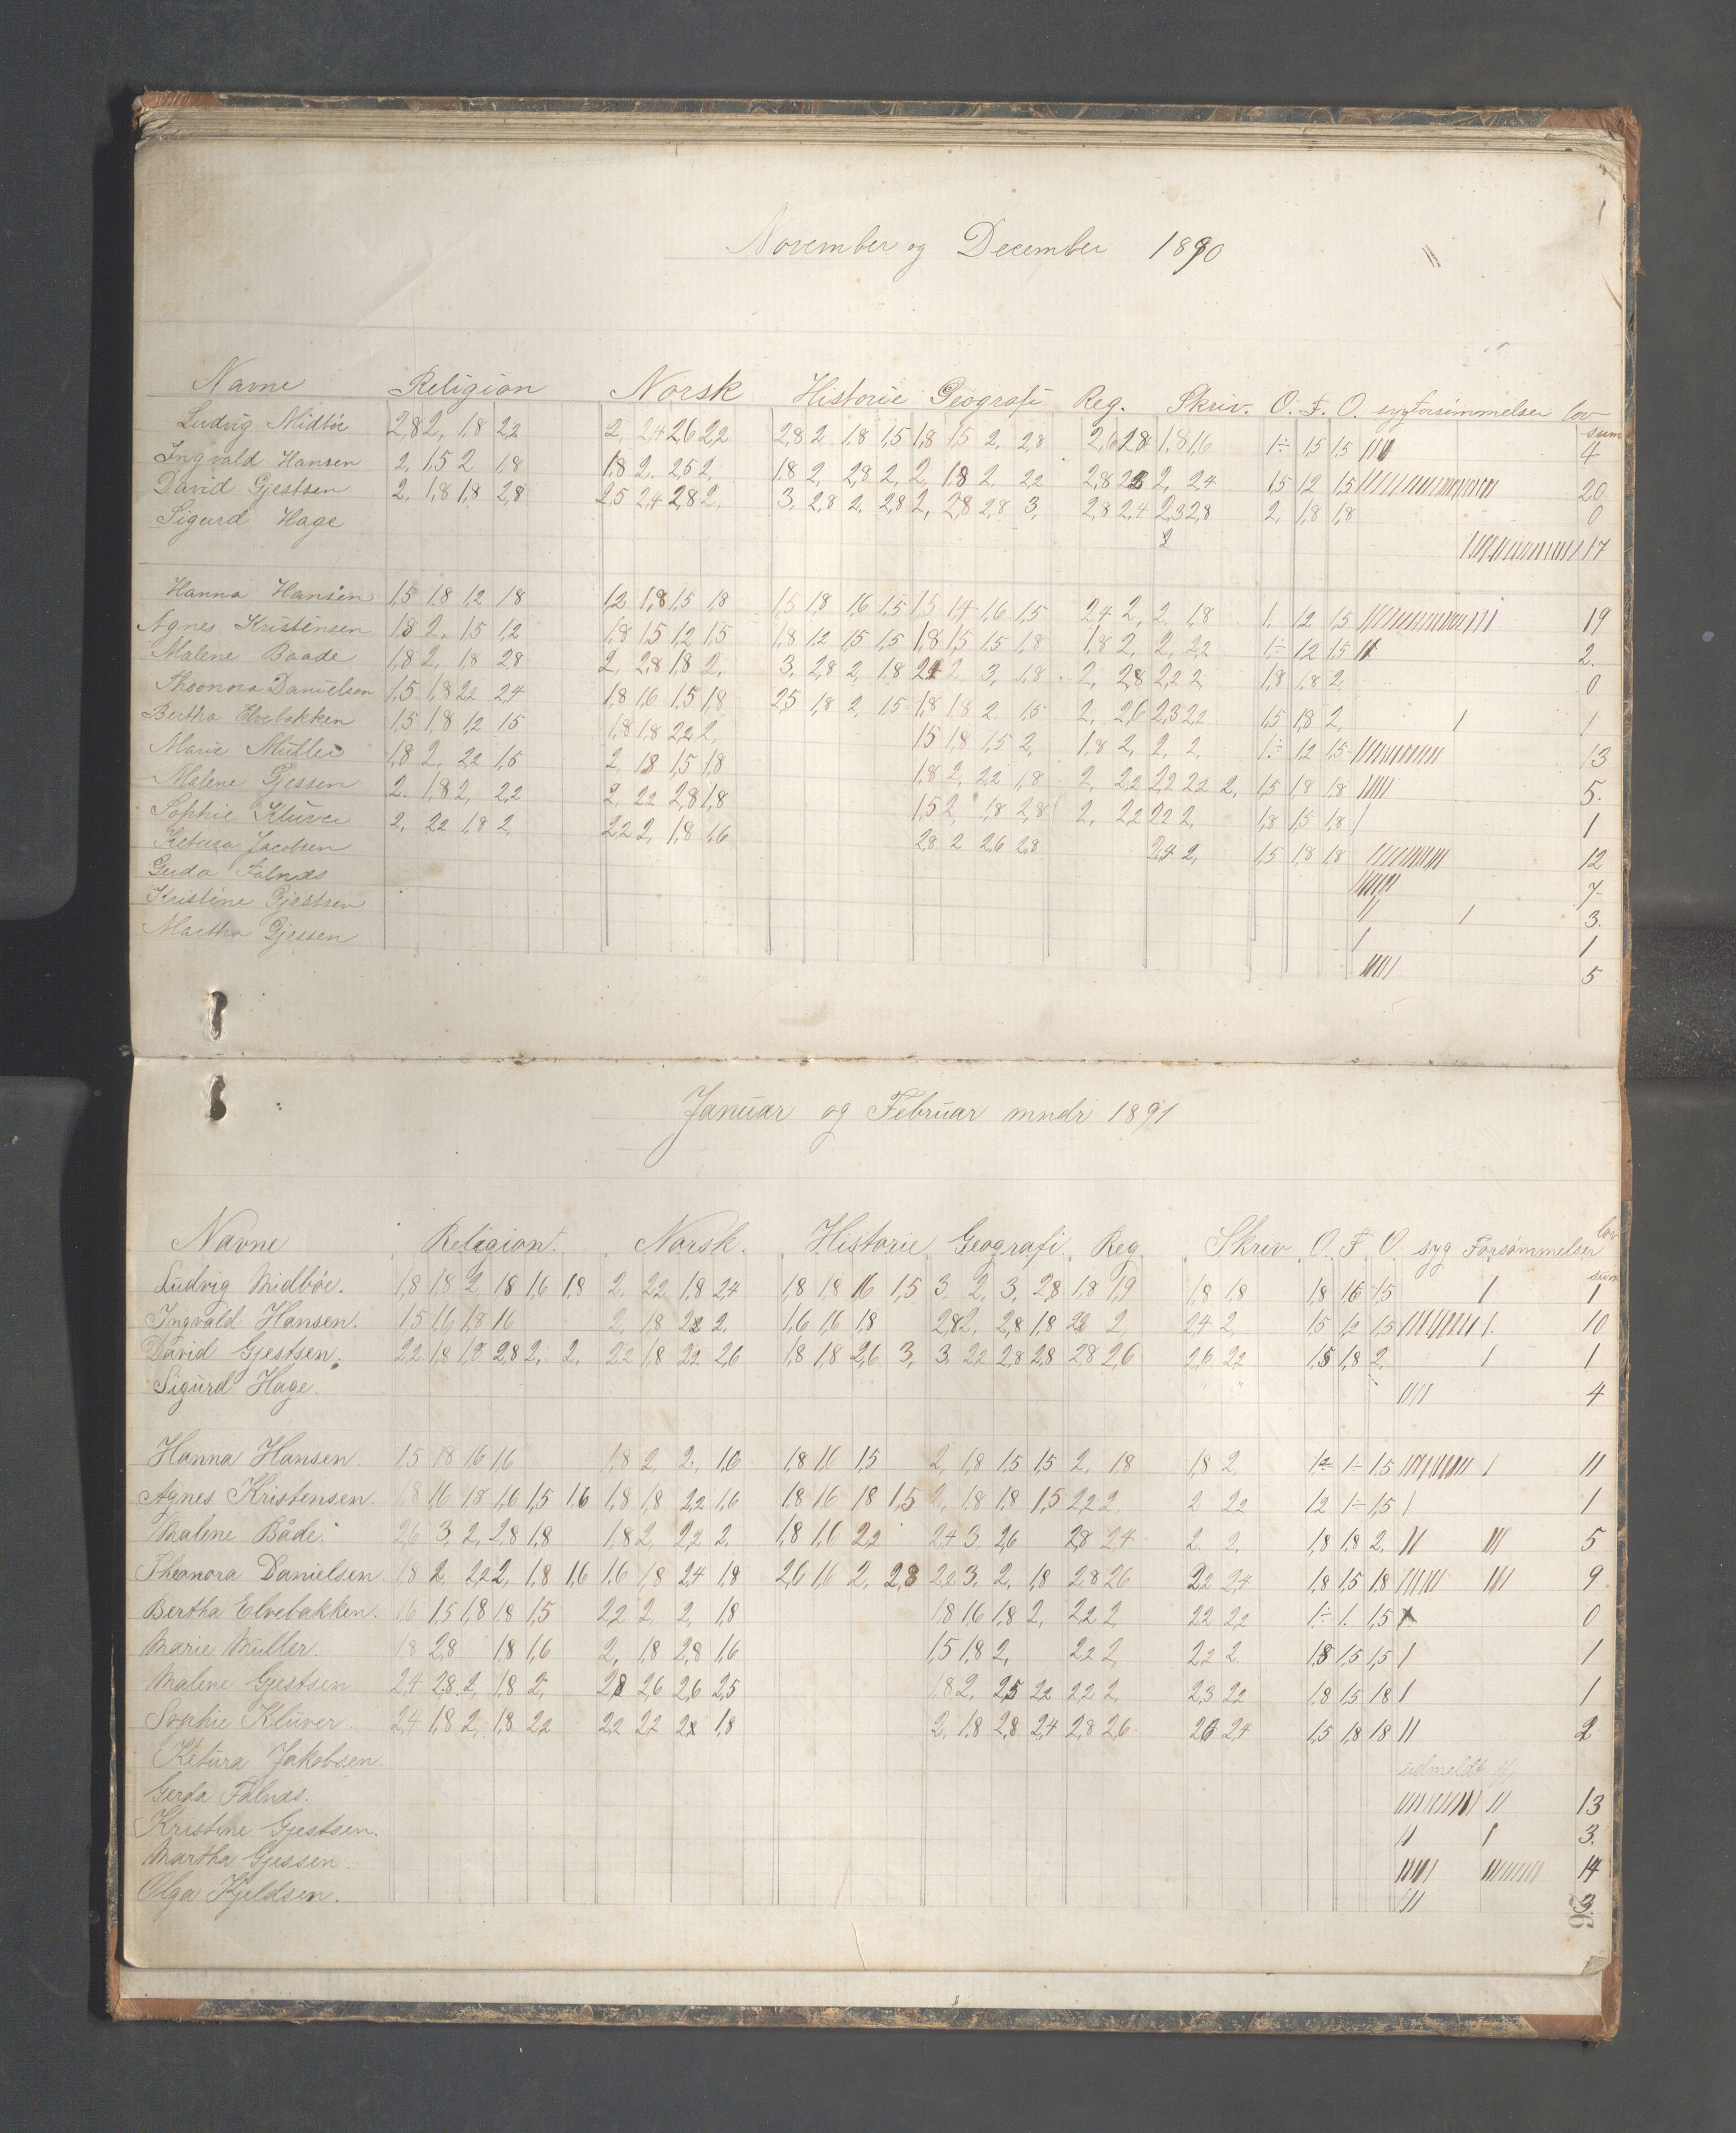 November og December 1890
Navne Religion Norsk Historie Geografi Reg. Skriv. O. F. O. syg Forsømmelser lov sum
Ludvig Midbøe 2,8 2, 1,8 2,2 2, 2,4 2,6 2,2 2,8 2 1,8 1,5 1,8 1,5 2, 2,8 2,6 2,8 1,8 1,6 1÷ 1,5 1,5 4
Ingvald Hansen 2, 1,5 2 1,8 1,8 2. 2,5 2, 1,8 2, 2,8 2, 2, 1,8 2. 2,2 2,8 2, 2,4 1,5 1,2 1,5 20.
David Gjestsen 2. 1,8 1,8 2,8 2,5 2,4 2,8 2, 3. 2,8 2. 2,8 2, 2,8 2,8 3, 2,8 2,4 2,3 2,8 2, 1,8 1,8 0
Sigurd Hage 2 17
Hanna Hansen 1,5 1,8 1,2 1,8 1,2 1,8 1,5 1,8 1,5 1,8 1,6 1,5 1,5 1,4 1,6 1,5 2,4 2, 2. 1,8 1. 1,2 1,5 19
Agnes Kristensen 1,8 2. 1,5 1,2 1,8 1,5 1,2 1,5 1,8 1,2 1,5 1,5 1,8 1,5 1,5 1,8 1,8 2, 2, 2,2 1÷ 1,2 1,5 2.
Malene Baade 1,8 2, 1,8 2,8 2, 2,8 1,8 2, 3. 2,8 2, 1,8 2,4 2, 3, 1,8 2, 2,8 2,2 2 1,8 1,8 2, 0
Theonora Danielsen 1,5 1,8 2,2 2,4 1,8 1,6 1,5 1,8 2,5 1,8 2, 1,5 1,8 1,8 2. 1,5 2, 2,6 2,3 2,2 1,5 1,8 2, 1
Bertha Elvebakken 1,5 1,8 1,2 1,5 1,8 1,8 2,2 2, 1,5 1,8 1,5 2, 1,8 2, 2, 2, 1÷ 1,2 1,5 13
Marie Müller 1,8 2, 2,2 1,5 2, 1,8 1,5 1,8 1,8 2, 2,2 1,8 2, 2,2 2,2 2,2 2, 1,5 1,8 1,8 5.
Malene Gjessen 2. 1,8 2, 2,2 2, 2,2 2,8 1,8 1,5 2, 1,8 2,8 2, 2,2 2,2 2, 1,8 1,5 1,8 1
Sophie Klüver 2, 2,2 1,8 2, 2,2 2, 1,8 1,6 2,8 2 2,6 2,8 2,4 2, 1,5 1,8 1,8 12
Ketura Jacobsen 7
Gerda Falnæs 3.
Kristine Gjestsen 1
Martha Gjessen 5
Januar og Februar mndr 1891
Navne Religion. Norsk. Historie Geografi. Reg. Skriv O. F. O. syg Forsømmelser lov sum
Ludvig Midbøe. 1,8 1,8 2, 1,8 1,6 1,8 2. 2,2 1,8 2,4 1,8 1,8 1,6 1,5 3. 2, 3, 2,8 1,8 1,9 1,8 1,8 1,8 1,6 1,5 1
Ingvald Hansen. 1,5 1,6 1,8 1,6 2, 1,8 2,2 2. 1,6 1,6 1,8 2,8 2, 2,8 1,8 2,2 2, 2,4 2, 1,5 1,2 1,5 10
David Gjestsen. 2,2 1,8 1,8 2,8 2, 2, 2,2 1,8 2,2 2,6 1,8 1,8 2,6 3, 3. 2,2 2,8 2,8 2,8 2,6 2,6 2,2 1,5 1,8 2, 1
Sigurd Hage. 4
Hanna Hansen. 1,5 1,8 1,6 1,6 1,8 2, 2, 1,6 1,8 1,6 1,5 2, 1,8 1,5 1,5 2, 1,8 1,8 2, 1,2 1÷ 1,5 11
Agnes Kristensen. 1,8 1,6 1,8 1,6 1,5 1,6 1,8 1,8 2,2 1,6 1,8 1,6 1,8 1,5 2, 1,8 1,8 1,5 2,2 2 2 2,2 1,2 1÷ 1,5 1
Malene Både. 2,6 3 2, 2,8 1,8 1,8 2, 2,2 2. 1,8 1,6 2,2 2,4 3. 2,6 2,8 2,4 2. 2. 1,8 1,8 2, 5
Theonora Danielsen. 1,8 2, 2,2 2, 1,8 1,6 1,6 1,8 2,4 1,8 2,6 1,6 2, 2,8 2,2 3. 2, 1,8 2,8 2,6 2,2 2,4 1,8 1,5 1,8 9
Bertha Elvebakken. 1,6 1,5 1,8 1,8 1,5 2,2 2, 2, 1,8 1,8 1,6 1,8 2, 2,2 2, 2,2 2,2 1÷ 1. 1,5 0
Marie Müller. 1,8 2,8 1,8 1,6 2, 1,8 2,8 1,6 1,5 1,8 2, 2,2 2, 2,2 2. 1,8 1,5 1,5 1
Malene Gjestsen 2,4 2,8 2, 1,8 2, 2,8 2,6 2,6 2,5 1,8 2, 2,5 2,2 2,2 2, 2,3 2,2 1,8 1,5 1,8 1
Sophie Klüver. 2,4 1,8 2, 1,8 2,2 2,2 2,2 2,2 1,8 2, 1,8 2,8 2,4 2,8 2,6 2,6 2,4 1,5 1,8 1,8 2
Ketura Jakobsen. udmeldt
Gerda Falnæs. 13
Kristine Gjestsen. 3.
Martha Gjessen. 14
Olga Kjeldsen. 3.
26